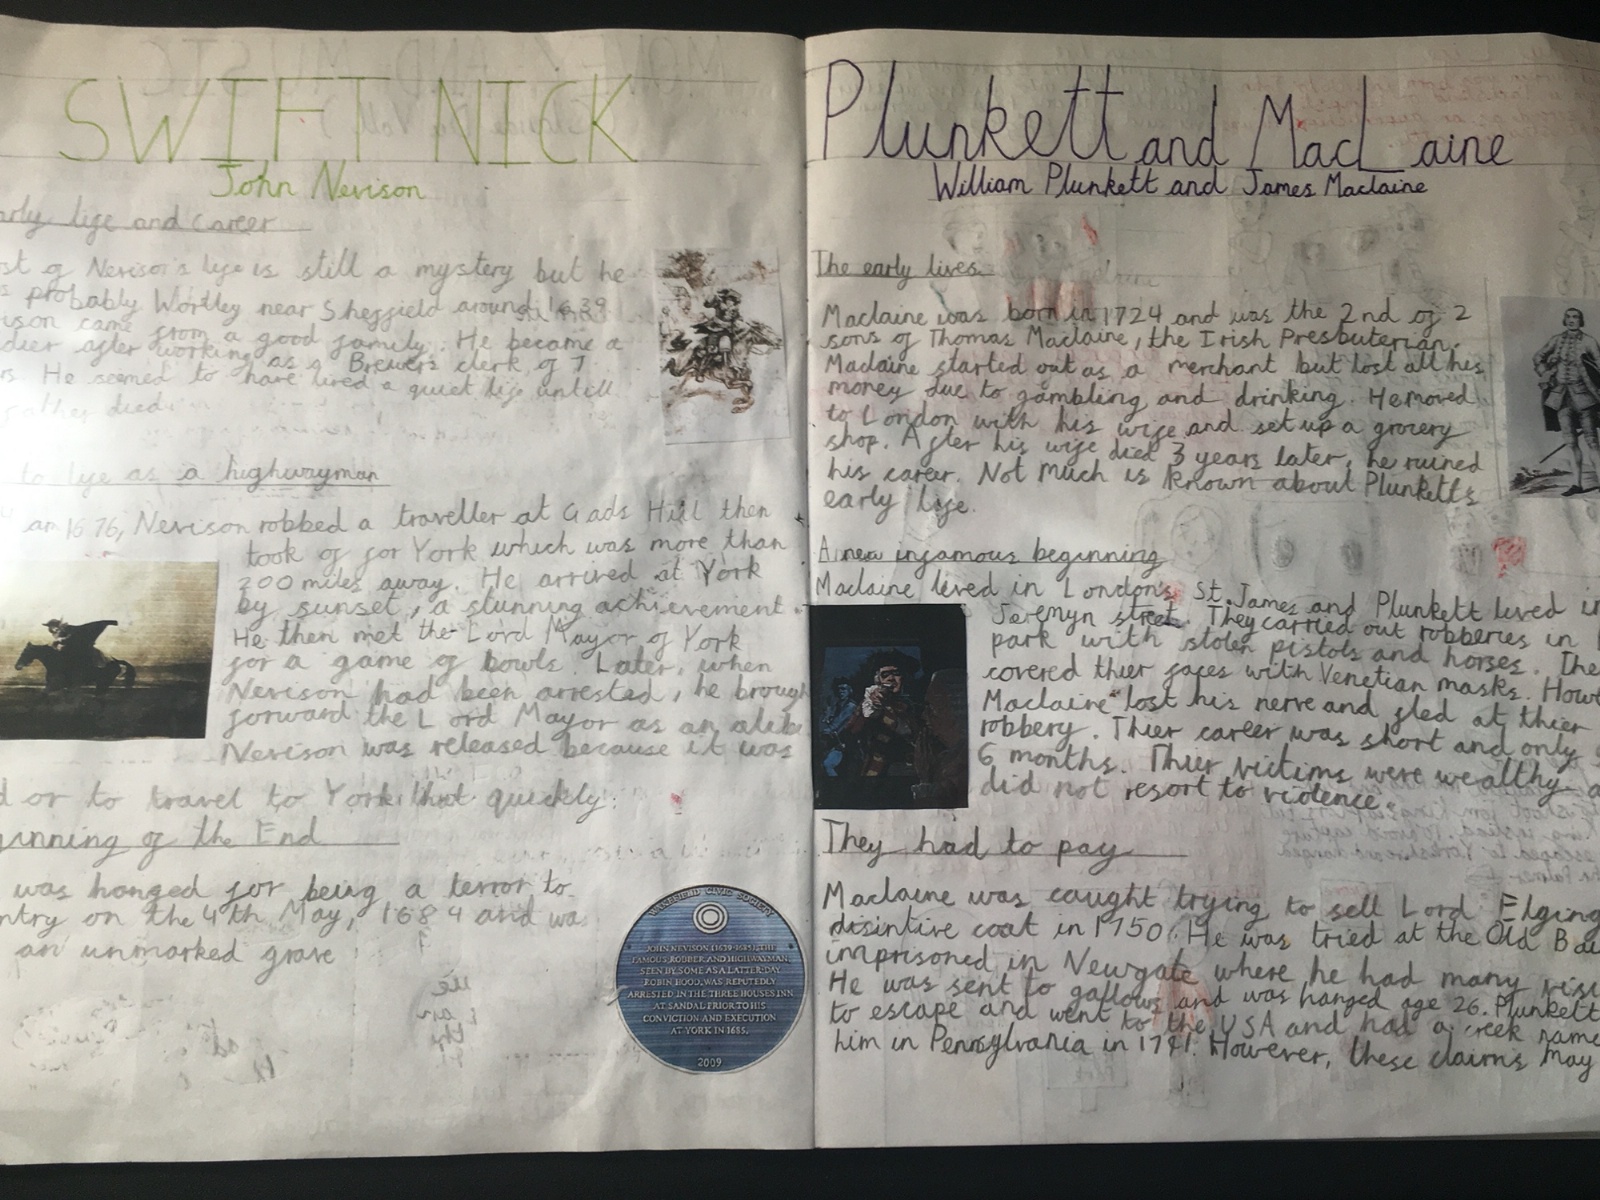 SWIFT NICK
John Nevison
arly life and career
st of Nevison's life is still a mystery but he
s probably Wortley near Sheffield around 1639
ison came from a good family. He became a
dier after working as a Brewer's clerk of 7
rs. He seemed to have lived a quiet life untill
father died.
to life as a highwayman
am 1676, Nevison robbed a traveller at Gads Hill then
took of for York which was more than
200 miles away. He arrived at York
by sunset, a stunning achievement.
He then met the Lord Mayor of York
for a game of bowls. Later, when
Nevison had been arrested, he brough
forward the Lord Mayor as an alibi
Nevison was released because it was
d or to travel to York that quickly.
ginning of the End
was hanged for being a terror to
ntry on the 4th May, 1684 and wa
an unmarked grave
WAKEFIELD CIVIC SOCIETY
JOHN NEVISON (1639-1685), THE
FAMOUS ROBBER AND HIGHWAYMAN,
SEEN BY SOME AS A LATTER-DAY
ROBIN HOOD, WAS REPUTEDLY
ARRESTED IN THE THREE HOUSES INN
AT SANDAL PRIOR TO HIS
CONVICTION AND EXECUTION
AT YORK IN 1685.
2009
Plunkett and MacLaine
William Plunkett and James Maclaine
The early lives
Maclaine was born in 1724 and was the 2nd of 2
sons of Thomas Maclaine, the Irish Presbuterian.
Maclaine started out as a merchant but lost all his
money due to gambling and drinking. He moved
to London with his wife and set up a grocery
shop. After his wife died 3 years later, he ruined
his career. Not much is known about Plunketts
early life.
A new infamous beginning
Maclaine lived in London's St. James and Plunkett lived in
Jeremyn street. They carried out robberies in
park with stolen pistols and horses. The
covered thier faces with Venetian masks. Howe
Maclaine lost his nerve and fled at thier
robbery. Thier career was short and only
6 months. Thier victims were wealthy a
did not resort to violence.
They had to pay
Maclaine was caught trying to sell Lord Elging
disintive coat in 1750. He was tried at the Old Bai
imprisoned in Newgate where he had many visi
He was sent to gallows and was hanged age 26. Plunkett
to escape and went to the USA and had a creek name
him in Pennsylvania in 1791. However, these claims may